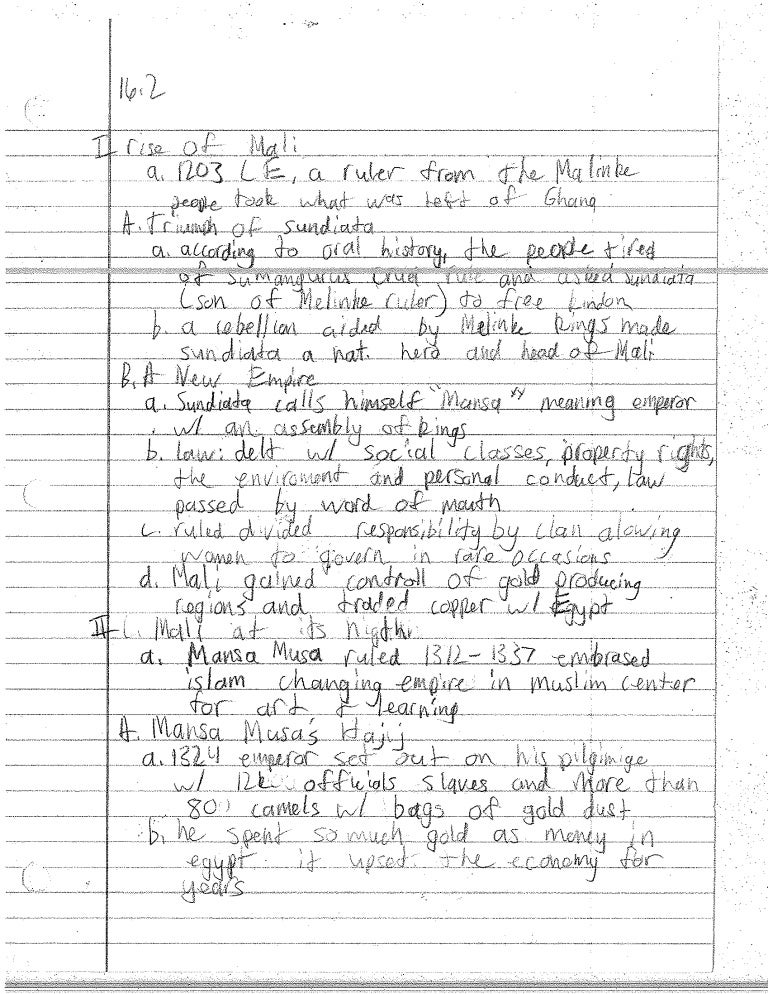 16.2
I rise of Mali
a. 1203 CE, a ruler from the Malinke
people took what was left of Ghana
A. Triumph of sundiata
a. according to oral history, the people tired
of sumangurus cruel rule and asked sundiata
(son of Melinke ruler) to free
b. a rebellion aided by Melinke kings made
sundiata a nat. hero and head of Mali
B. A New Empire
a. Sundiata calls himself "Mansa" meaning emperor
w/ an assembly of kings
b. law: delt w/ social classes, property rights,
the enviroment and personal conduct, law
passed by word of mouth
c. ruled divided responsibility by clan alowing
women to govern in rare occasions
d. Mali gained controll of gold producing
regions and traded copper w/ Egypt
II Mali at its higth
a. Mansa Musa ruled 1312-1337 embrased
islam changing empire in muslim center
for art & learning
A. Mansa Musa's Hajij
a. 1324 emperor set out on his pilgimige
w/ 12k officials slaves and more than
80 camels w/ bags of gold dust
b. he spent so much gold as money in
egypt it upset the economy for
years